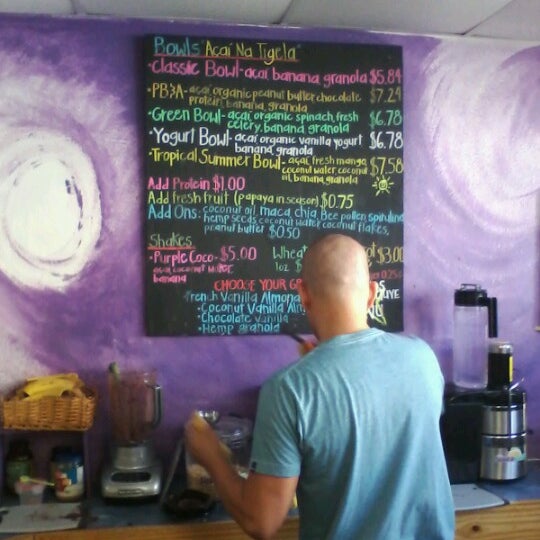 Bowls "Açaí Na Tigela"
•Classic Bowl-açaí, banana, granola $5.84
•PB&A-açaí, organic peanut butter, chocolate $7.24
protein, banana, granola
•Green Bowl-açaí, organic spinach, fresh $6.78
celery, banana, granola
•Yogurt Bowl-açaí, organic vanilla yogurt $6.78
banana, granola
•Tropical Summer Bowl-açaí, fresh mango, $7.58
coconut water, coconut
oil, banana, granola
Add Protein $1.00
Add fresh fruit (papaya in season) $0.75
Add Ons: coconut oil, maca, chia, Bee pollen, spirulina
hemp seeds, coconut water, coconut flakes,
peanut butter $0.50
Shakes
•Purple Coco- $5.00
açaí, coconut water,
banana
Wheat $3.00
1oz
CHOOSE YOUR
French Vanilla Almond
•Coconut Vanilla
•Chocolate Vanilla
•Hemp granola